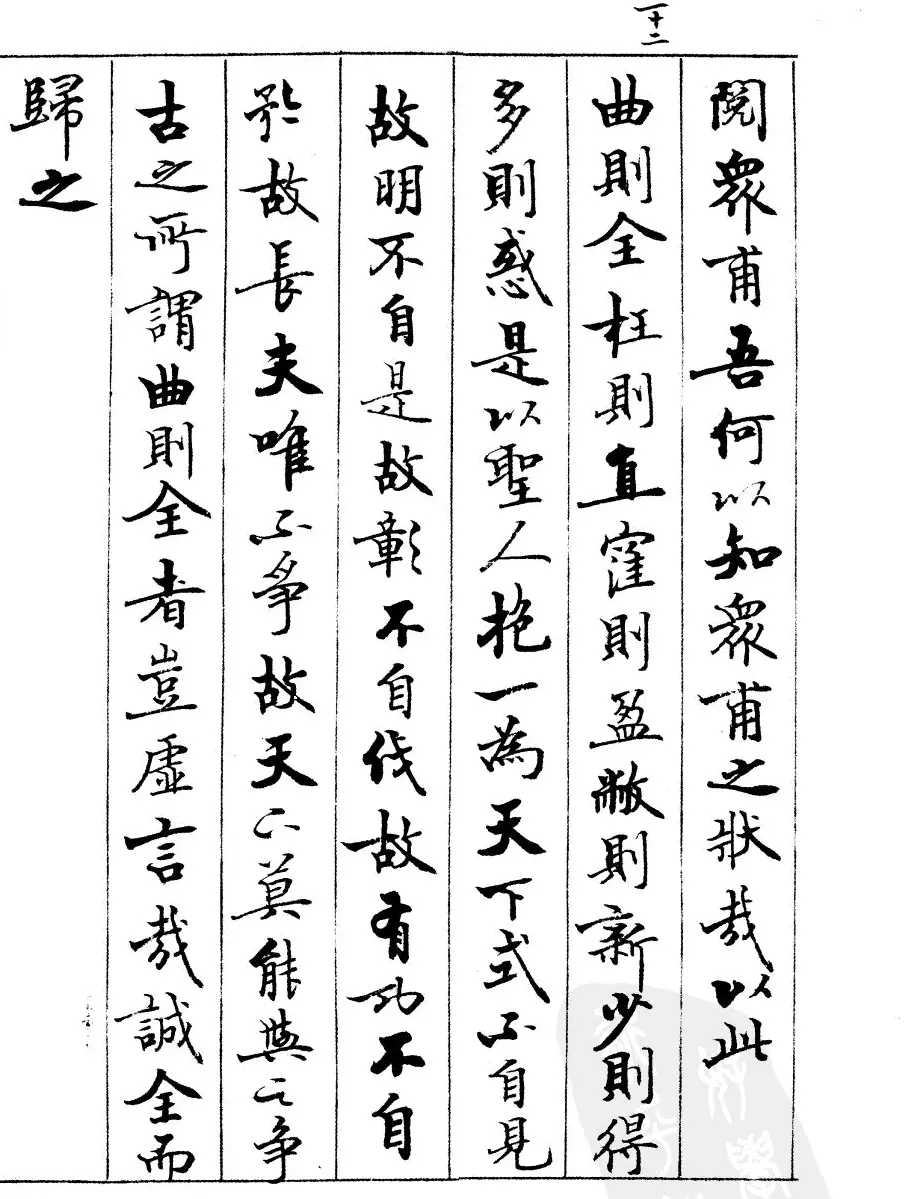 十二
閱眾甫吾何以知眾甫之狀哉以此
曲則全枉則直窪則盈敝則新少則得
多則惑是以聖人抱一為天下式不自見
故明不自是故彰不自伐故有功不自
矜故長夫唯不爭故天下莫能與之爭
古之所謂曲則全者豈虛言哉誠全而
歸之